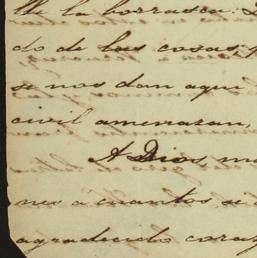 la borrasca:
do de las cosas q
se nos dan aqui
civil amenazan,
A Dios, m
nes a cuantos se
agradecido coraz